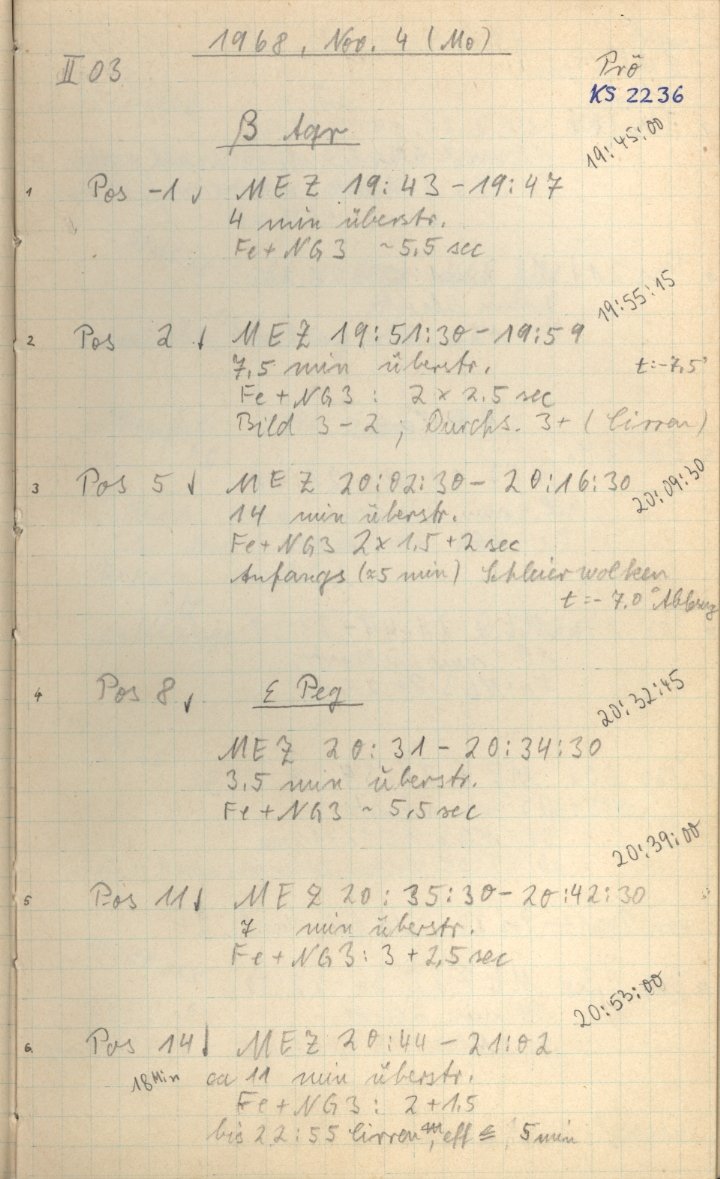 1968, Nov. 4 (Mo)
II 03
Prö
KS 2236
β Aqr
19:45:00
1 Pos -1 ↓ MEZ 19:43 - 19:47
4 min überstr.
Fe + NG3 ~5,5 sec
19:55:15
2 Pos 2 ↓ MEZ 19:51:30 - 19:59
7,5 min überstr. t=-7,5°
Fe + NG3 : 2 x 2.5 sec
Bild 3 - 2 ; Durchs. 3+ (Cirren)
3 Pos 5 ↓ MEZ 20:02:30 - 20:16:30 20:09:30
14 min überstr.
Fe + NG3 2 x 1,5 + 2 sec
Anfangs (≈5 min) Schleierwolken
t =- 7.0°
4 Pos 8 ↓ ε Peg
20:32:45
MEZ 20:31 - 20:34:30
3,5 min überstr.
Fe + NG3 ~ 5,5 sec
20:39:00
5 Pos 11 ↓ MEZ 20:35:30 - 20:42:30
7 min überstr.
Fe + NG3 : 3 + 2,5 sec
20:53:00
6 Pos 14 ↓ MEZ 20:44 - 21:02
18 Min ca 11 min überstr.
Fe + NG3 : 2 + 1,5
bis 22:55 Cirren, eff ≤ 5 min